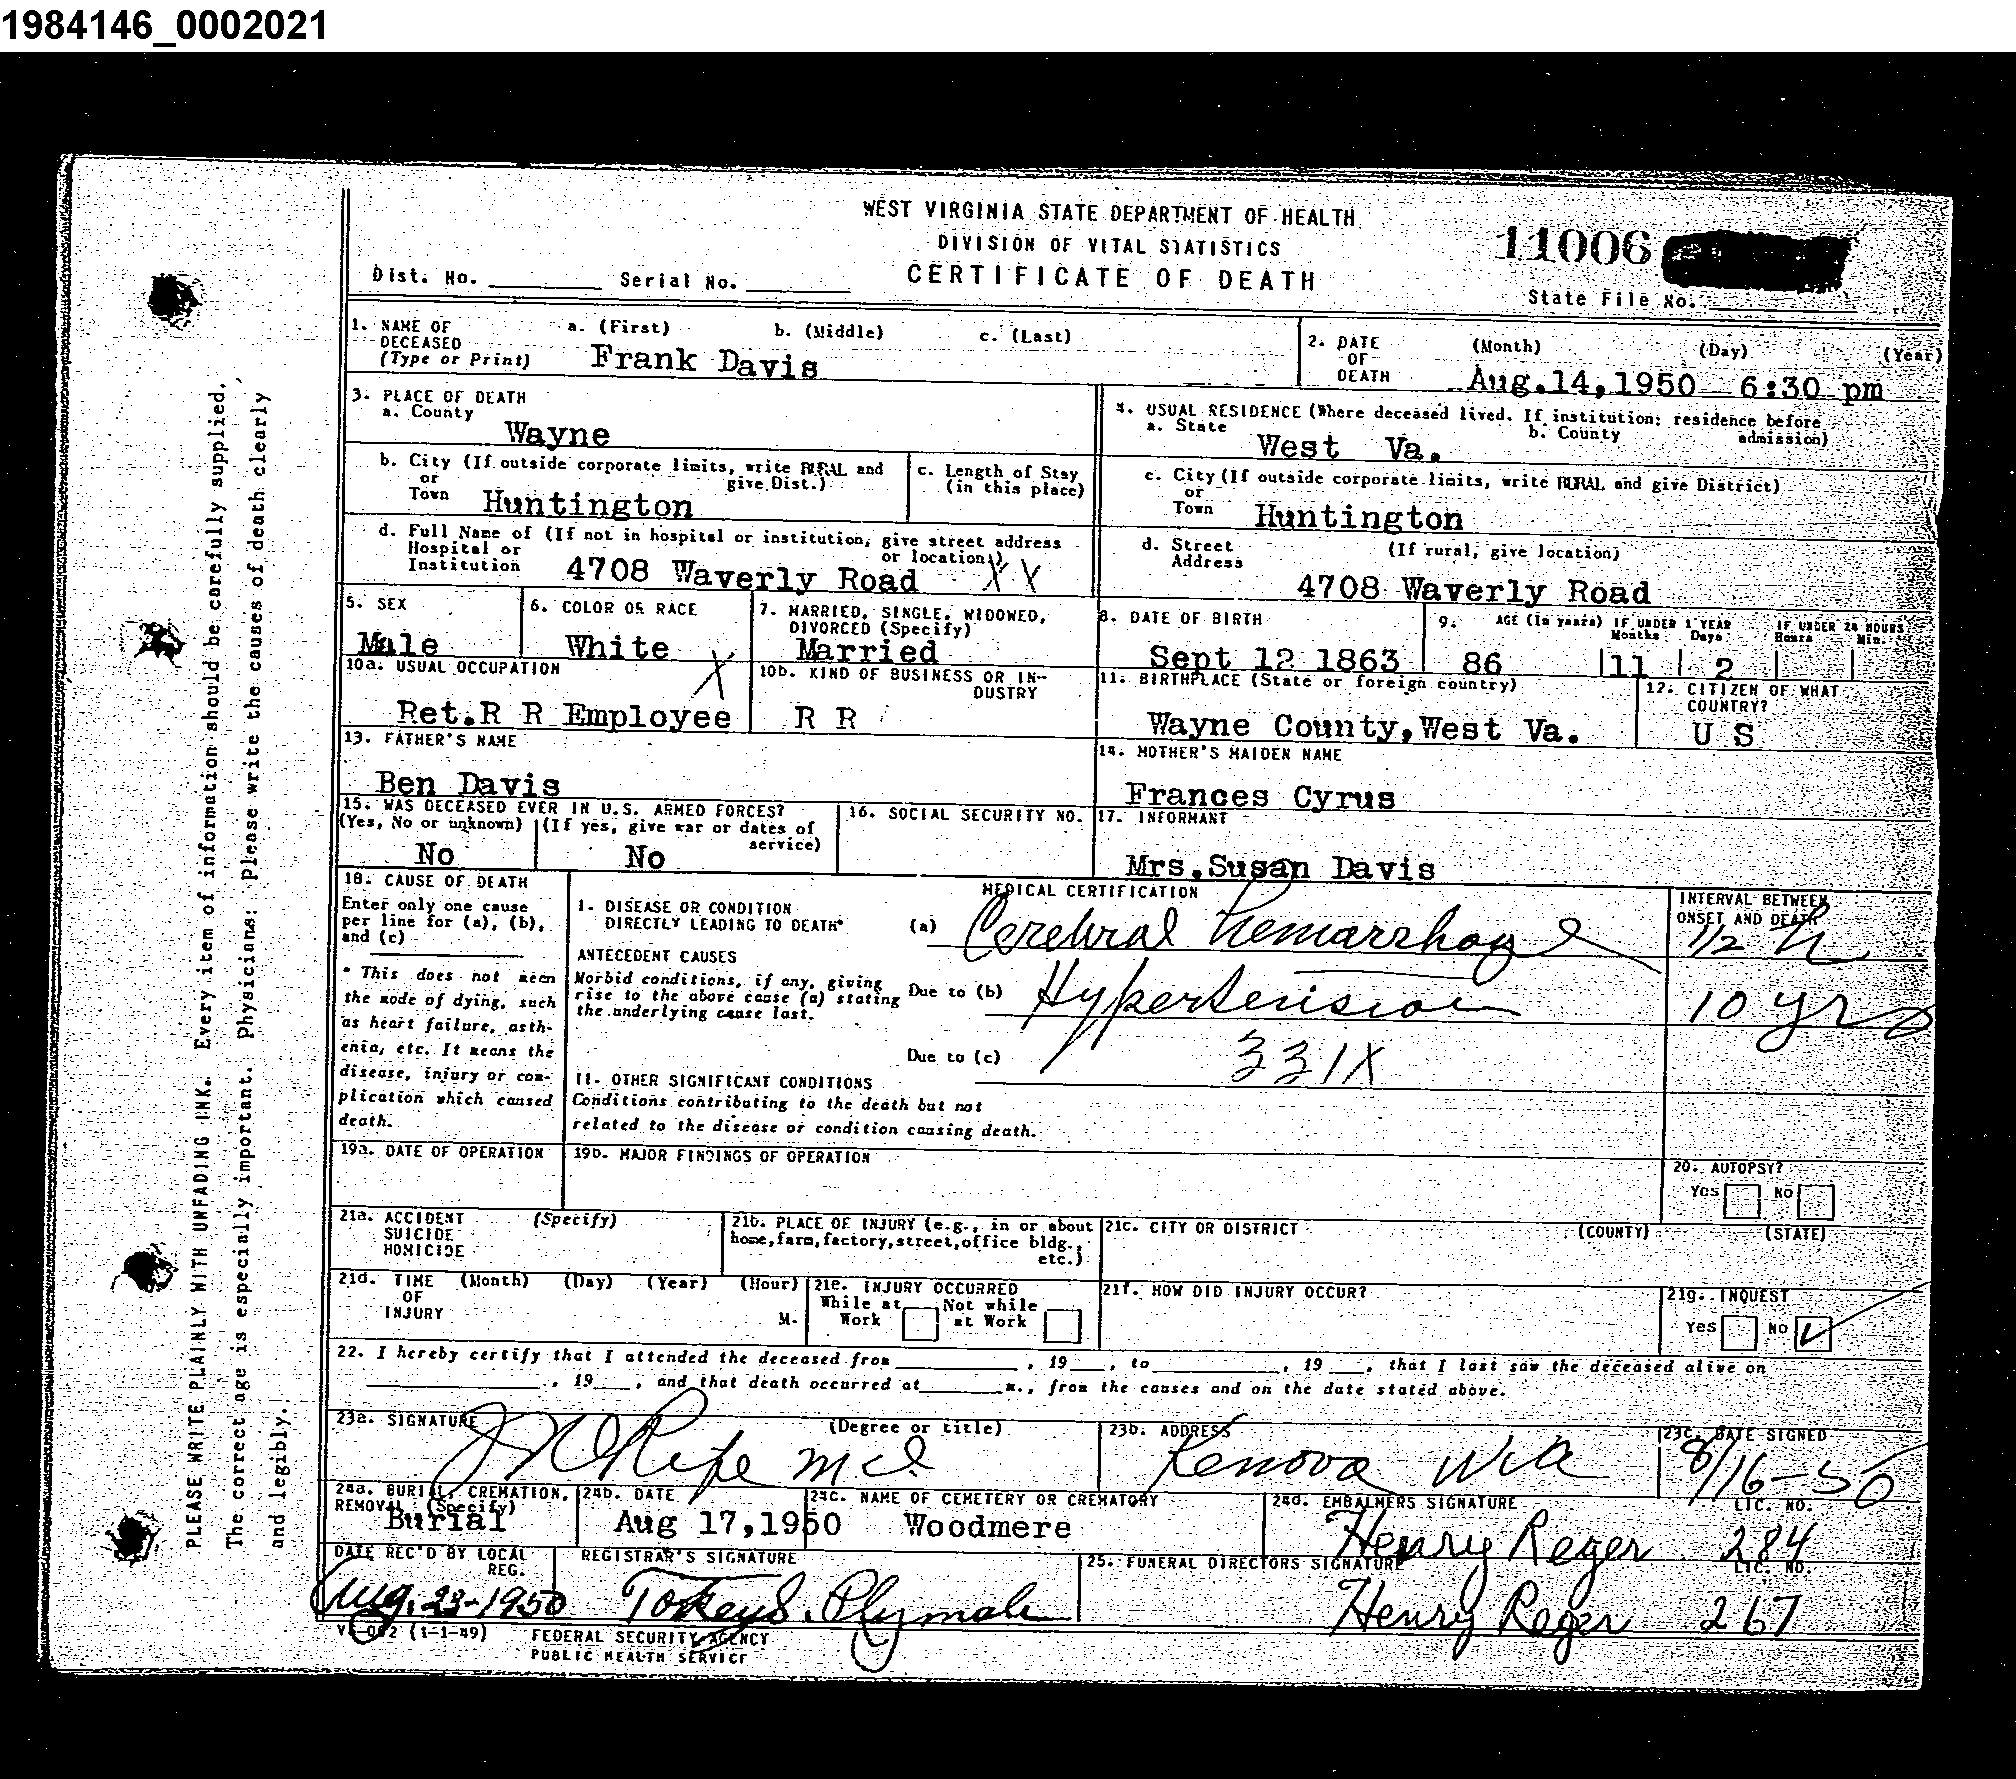 1984146_0002021
WEST VIRGINIA STATE DEPARTMENT OF HEALTH
DIVISION OF VITAL STATISTICS
CERTIFICATE OF DEATH
11006
Dist. No. Serial No.
State File No.
1. NAME OF DECEASED (Type or Print) a. (First) b. (Middle) c. (Last)
Frank Davis
2. DATE OF DEATH (Month) (Day) (Year)
Aug.14,1950 6:30 pm
3. PLACE OF DEATH
a. County
Wayne
4. USUAL RESIDENCE (Where deceased lived. If institution: residence before admission)
a. State b. County
West Va.
b. City (If outside corporate limits, write RURAL and give Dist.)
or Town
Huntington
c. Length of Stay (in this place)
c. City (If outside corporate limits, write RURAL and give District)
or Town
Huntington
d. Full Name of Hospital or Institution (If not in hospital or institution, give street address or location)
4708 Waverly Road XX
d. Street Address (If rural, give location)
4708 Waverly Road
5. SEX
Male
6. COLOR OR RACE
White X
7. MARRIED, SINGLE, WIDOWED, DIVORCED (Specify)
Married
8. DATE OF BIRTH
Sept 12 1863
9. AGE (In years) IF UNDER 1 YEAR Months Days IF UNDER 24 HOURS Hours Min.
86 11 2
10a. USUAL OCCUPATION
Ret.R R Employee
10b. KIND OF BUSINESS OR INDUSTRY
R R
11. BIRTHPLACE (State or foreign country)
Wayne County,West Va.
12. CITIZEN OF WHAT COUNTRY?
U S
13. FATHER'S NAME
Ben Davis
14. MOTHER'S MAIDEN NAME
Frances Cyrus
15. WAS DECEASED EVER IN U.S. ARMED FORCES?
(Yes, No or unknown) (If yes, give war or dates of service)
No No
16. SOCIAL SECURITY NO.
17. INFORMANT
Mrs.Susan Davis
18. CAUSE OF DEATH
Enter only one cause per line for (a), (b), and (c)
* This does not mean the mode of dying, such as heart failure, asthenia, etc. It means the disease, injury or complication which caused death.
MEDICAL CERTIFICATION
INTERVAL BETWEEN ONSET AND DEATH
1. DISEASE OR CONDITION DIRECTLY LEADING TO DEATH*
(a) Cerebral Hemarrhage 1/2 h
ANTECEDENT CAUSES
Morbid conditions, if any, giving rise to the above cause (a) stating the underlying cause last.
Due to (b) Hypertension 10 yrs
Due to (c) 331X
11. OTHER SIGNIFICANT CONDITIONS
Conditions contributing to the death but not related to the disease or condition causing death.
19a. DATE OF OPERATION
19b. MAJOR FINDINGS OF OPERATION
20. AUTOPSY?
Yes No
21a. ACCIDENT SUICIDE HOMICIDE (Specify)
21b. PLACE OF INJURY (e.g., in or about home,farm,factory,street,office bldg., etc.)
21c. CITY OR DISTRICT (COUNTY) (STATE)
21d. TIME OF INJURY (Month) (Day) (Year) (Hour) M.
21e. INJURY OCCURRED
While at Work Not while at Work
21f. HOW DID INJURY OCCUR?
21g. INQUEST
Yes No
22. I hereby certify that I attended the deceased from , 19 , to , 19 , that I last saw the deceased alive on
, 19 , and that death occurred at m., from the causes and on the date stated above.
23a. SIGNATURE (Degree or title)
Rife M d.
23b. ADDRESS
Kenova WVa
23c. DATE SIGNED
8/16-50
24a. BURIAL, CREMATION, REMOVAL (Specify)
Burial
24b. DATE
Aug 17,1950
24c. NAME OF CEMETERY OR CREMATORY
Woodmere
24d. EMBALMERS SIGNATURE LIC. NO.
Henry Reger 284
DATE REC'D BY LOCAL REG.
Aug. 23-1950
REGISTRAR'S SIGNATURE
Plymale
25. FUNERAL DIRECTORS SIGNATURE LIC. NO.
Henry Reger 267
(1-1-49)
FEDERAL SECURITY AGENCY
PUBLIC HEALTH SERVICE
PLEASE WRITE PLAINLY WITH UNFADING INK. Every item of information should be carefully supplied.
The correct age is especially important. Physicians: please write the causes of death clearly
and legibly.